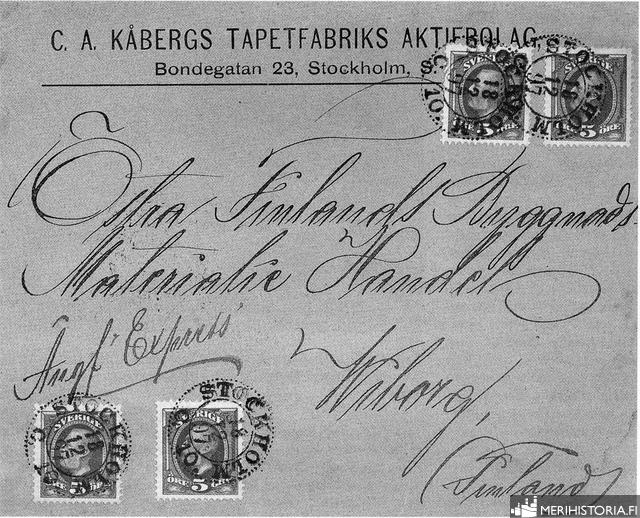 C. A. KÅBERGS TAPETFABRIKS AKTIEBOLAG,
Bondegatan 23, Stockholm, S.
SVERIGE
5 ÖRE
STOCKHOLM
18
12
97
Östra Finlands Byggnads-
Materialie Handel
Ångf "Express"
Wiborg,
(Finland)
SVERIGE
5 ÖRE
STOCKHOLM
12
SVERIGE
ÖRE 5 ÖRE
STOCKHOLM
97
MERIHISTORIA.FI